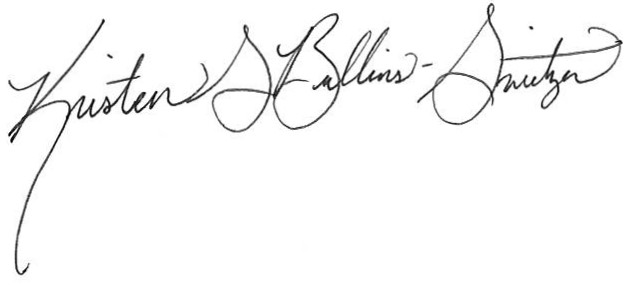 Kristen S Bullins-Snitzer